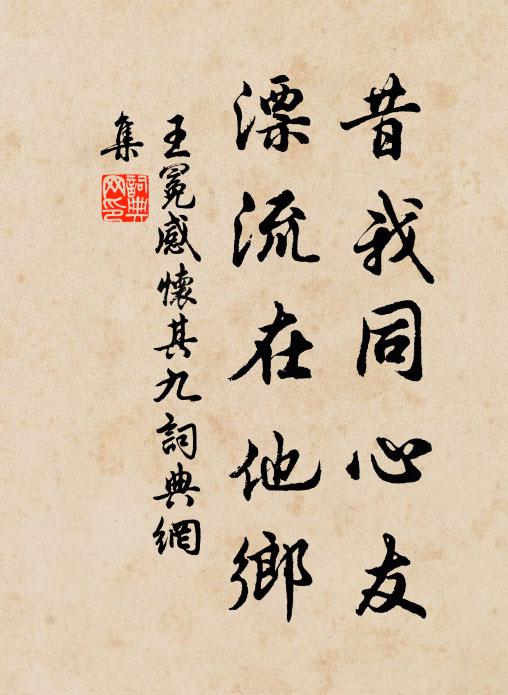 昔我同心友
漂流在他鄉
王冕感懷其九詞典網
集
詞典
网印